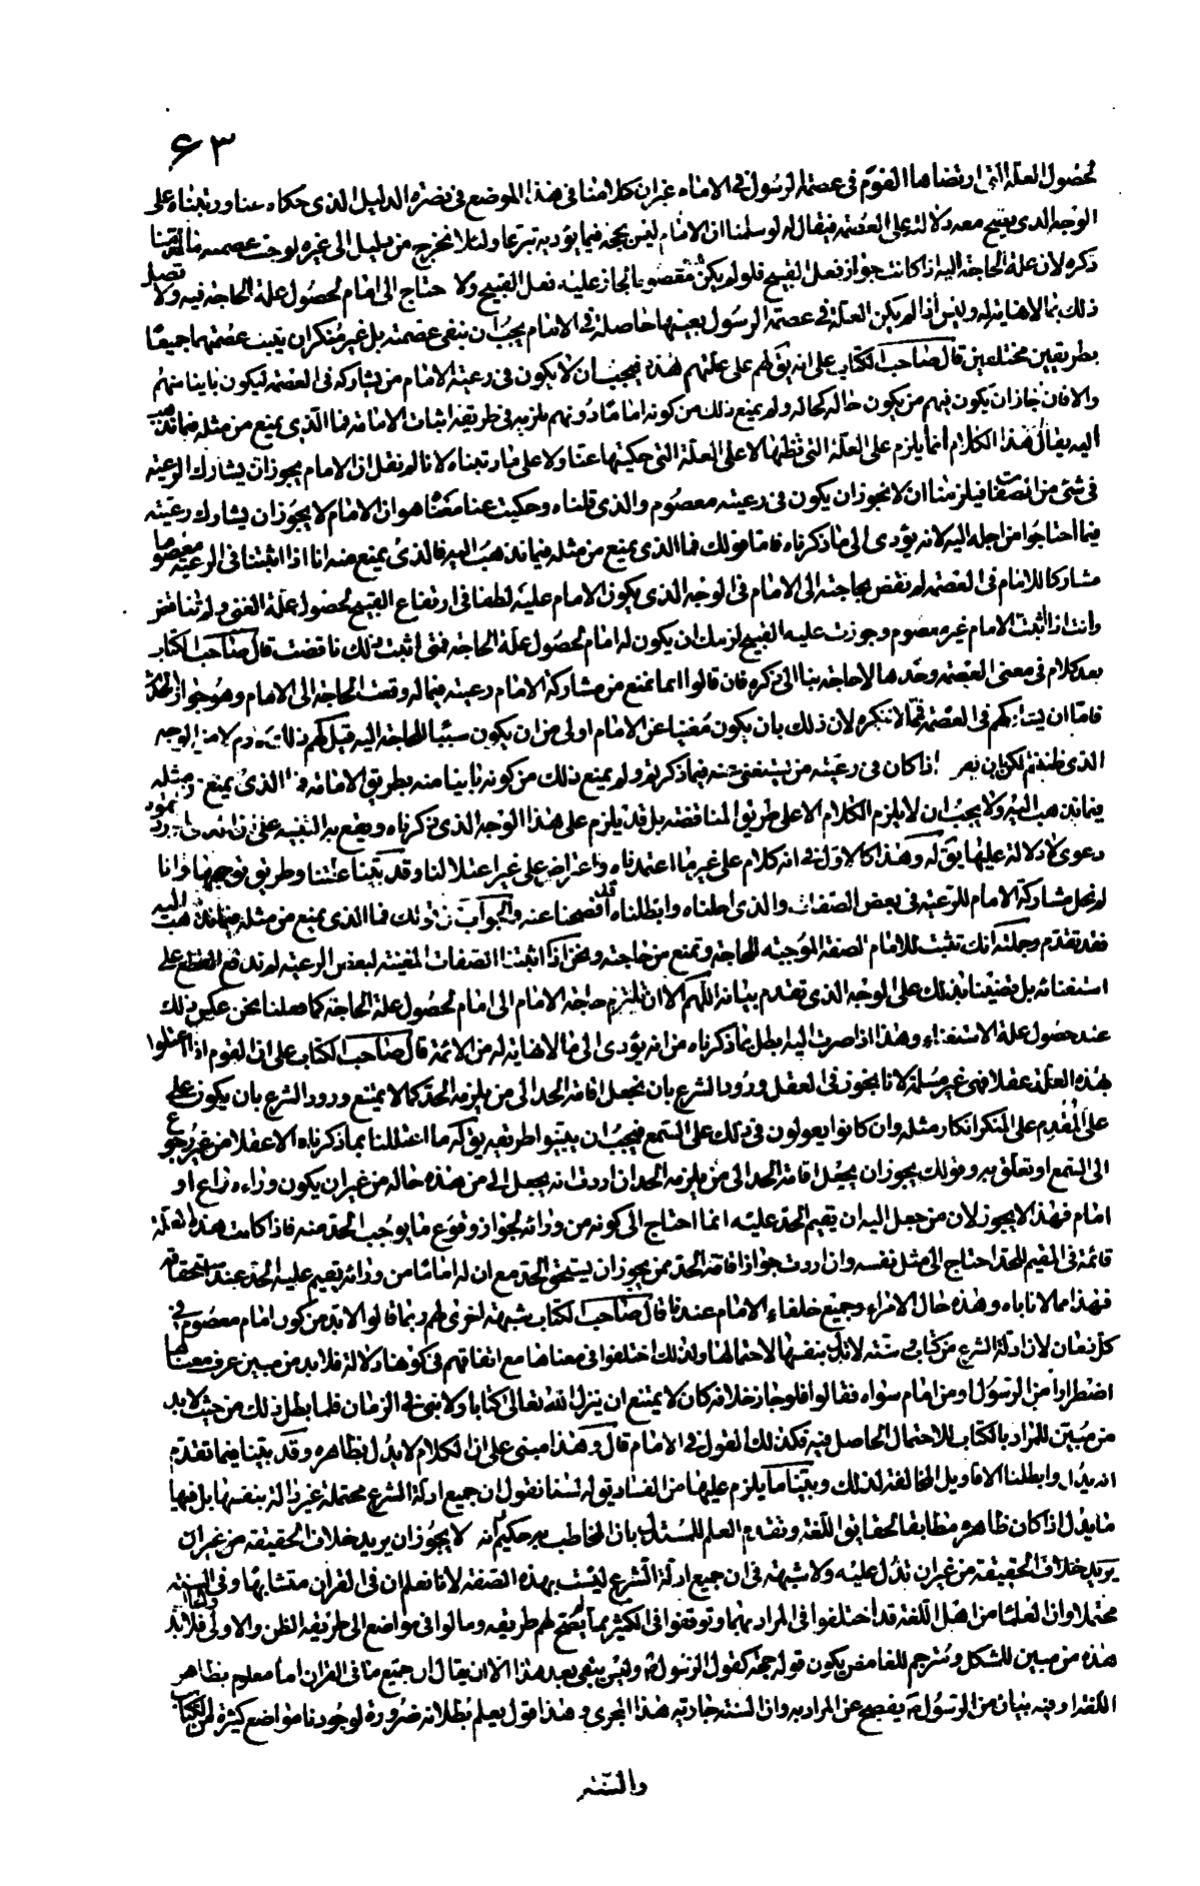 ۶۳
لحصول العلة التي ارتضاها القوم في عصمة الرسول في الامام غير ان كلامنا في هذا الموضع في نصرة الدليل الذي حكاه عنا ورتبناه على
الوجه الذي يصح معه دلالة على العصمة فيقال له لو سلمنا ان الامام ليس بحجة فيما يؤديه تبرعا ولئلا نخرج من دليل الى غيره لوجبت عصمته
ذكره لان علة الحاجة اليه اذا كانت جواز فعل القبيح فلو لم يكن معصوما لجاز عليه فعل القبيح ولا حتاج الى امام لحصول علة الحاجة فيه ولا تصل
ذلك بما لا نهاية له وليس اذا لم يكن العلة في عصمة الرسول بعينها حاصلة في الامام يجب ان ينفى عصمته بل غير منكر ان يثبت عصمتهما جميعا
بطريقين مختلفين قال صاحب الكتاب على انه يق لهم على علتهم هذه فيجب ان لا يكون في رعية الامام من يشاركه في العصمة ليكون باينا منهم
والا فان جاز ان يكون فيهم من يكون حاله كحاله ولم يمنع ذلك من كونه اماما دونهم فما الذي يمنع من مثله فيما نذهب
اليه يقال هذا الكلام انما يلزم على العلة التي ظنها لا على العلة التي حكيتها عنا ولا على ما رتبناه لانا لم نقل ان الامام يجوز ان يشارك الرعية
في شئ من الصفات فيلزمنا ان لا نجوز ان يكون في رعيته معصوم والذي قلناه وحكيت عنا معناه هو ان الامام لا يجوز ان يشارك رعيته
فيما احتاجوا من اجله اليه لانه يؤدى الى ما ذكرناه فاما قولك فما الذي يمنع من مثله فيما نذهب اليه فالذي يمنع منه انا اذا اثبتنا في الرعية معصوما
مشاركا للامام في العصمة لم نقض بحاجته الى الامام في الوجه الذي يكون الامام عليه لطفا في ارتفاع القبيح لحصول علة الغنى
وانت اذا اثبت الامام غير معصوم وجوزت عليه القبيح لزمك ان يكون له امام لحصول علة الحاجة فمتى اثبت ذلك ناقضت قال صاحب الكتاب
بعد كلام في معنى العصمة وحدها لا حاجة بنا الى ذكره فان قالوا انما نمنع من مشاركة الامام رعيته فيما له وقعت الحاجة الى الامام وهو جواز الحدث
فاما ان يشاركهم في العصمة فمما لا ننكره لان ذلك بان يكون مغنيا عن الامام اولى من ان يكون سببا للحاجة اليه قيل لهم
الذي ظننتم لكن اذا كان في رعيته من يستغني عنه فيما ذكرتم ولم يمنع ذلك من كونه باينا منه بطريق الامامة الذي يمنع من مثله
فيما نذهب اليه ولا يجب ان لا يلزم الكلام الا على طريق المناقضة بل قد يلزم على هذا الوجه الذي ذكرناه ويقع به التنبيه على
دعوى لا دلالة عليها يق له وهذا كالاول في انه كلام على غير ما اعتمدناه واعتراض على غير اعتلالنا وقد بينا علتنا وطريق توجهها وانا
لم نحل مشاركة الامام للرعية في بعض الصفات والذي احلناه وابطلناه قد افصحنا عنه والجواب عن قولك فما الذي يمنع من مثله فيما نذهب اليه
فقد تقدم وجملته انك تثبت للامام الصفة الموجبة للحاجة وتمنع من حاجته ونحن اذا اثبتنا الصفات المغنية لبعض الرعية لم ندفع القطع على
استغنائه بل قضينا بذلك على الوجه الذي تقدم بيانه اللهم الا ان تلتزم حاجة الامام الى امام لحصول علة الحاجة كما فعلنا نحن عكس ذلك
عند حصول علة الاستغناء وهذا اذا صرت اليه بطل بما ذكرناه من انه يؤدى الى ما لا نهاية له من الائمة قال صاحب الكتاب على ان القوم اذا اعتلوا
بهذه العلة عقلا فهي غير مسلمة لانا نجوز في العقل ورود الشرع بان نجعل اقامة الحد الى من يلزمه الحد كما لا يمتنع ورود الشرع بان يكون على
على المقدم على المنكر انكار مثله وان كانوا يعولون في ذلك على السمع فيجب ان يبينوا طريقه يق له ما اعتللنا بما ذكرناه الا عقلا من غير رجوع
الى السمع او تعلق به وقولك يجوز ان يجعل اقامة الحد الى من يلزمه الحد ان اردت انه يجعل الى من هذه حاله من غير ان يكون وراءه راع او
امام فهذا لا يجوز لان من جعل اليه ان يقيم الحد عليه انما احتاج الى كونه من ورائه لجواز وقوع ما يوجب الحد منه فاذا كانت هذه العلة
قائمة في المقيم للحد احتاج الى مثل نفسه وان اردت جواز اقامة الحد ممن يجوز ان يستحق الحد مع ان له اماما من ورائه يقيم عليه الحد عند استحقاقه
فهذا مما لا ناباه وهذه حال الامراء وجميع خلفاء الامام عندنا قال صاحب الكتاب شبهة اخرى لهم وربما قالوا لابد من كون امام معصوم في
كل زمان لان ادلة الشرع من كتاب وسنة لا تدل بنفسها لاحتمالها ولذلك اختلفوا في معناها مع اتفاقهم في كونها دلالة فلابد من مبين عرف معناها
اضطرارا من الرسول او من امام سواه فقالوا فلو جاز خلافه كان لا يمتنع ان ينزل الله تعالى كتابا ولا نبي في الزمان فلما بطل ذلك من حيث لابد
من مبين للمراد بالكتاب للاحتمال الحاصل فيه فكذلك القول في الامام قال وهذا مبنى على ان الكلام لا يدل بظاهره وقد بينا فيما تقدم
انه يدل وابطلنا الاقاويل المخالفة لذلك وبينا ما يلزم عليها من الفساد يق له لسنا نقول ان جميع ادلة الشرع محتملة غير دالة بنفسها بل فيها
ما يدل اذا كان ظاهره مطابقا لحقايق اللغة وتقدم العلم للمستدل بان المخاطب به حكيم انه لا يجوز ان يريد خلاف الحقيقة من غير ان
يريد خلاف الحقيقة من غير ان تدل عليه ولا شبهة في ان جميع ادلة الشرع ليست بهذه الصفة لانا نعلم ان في القران متشابها وفي السنة
محتملا وان العلماء من اهل اللغة قد اختلفوا في المراد بهما وتوقفوا في الكثير مما لم يصح لهم طريقه ومالوا في مواضع الى طريقة الظن والاولى فلابد والحال
هذه من مبين للمشكل ومترجم للغامض يكون قوله حجة كقول الرسول ص وليس يبقى بعد هذا الا ان يقال ان جميع ما في القران اما معلوم بظاهر
اللغة او فيه بيان من الرسول ص يفصح عن المراد به وان السنة جارية هذا المجرى وهذا قول يعلم بطلانه ضرورة لوجودنا مواضع كثيرة من الكتاب
والسنة